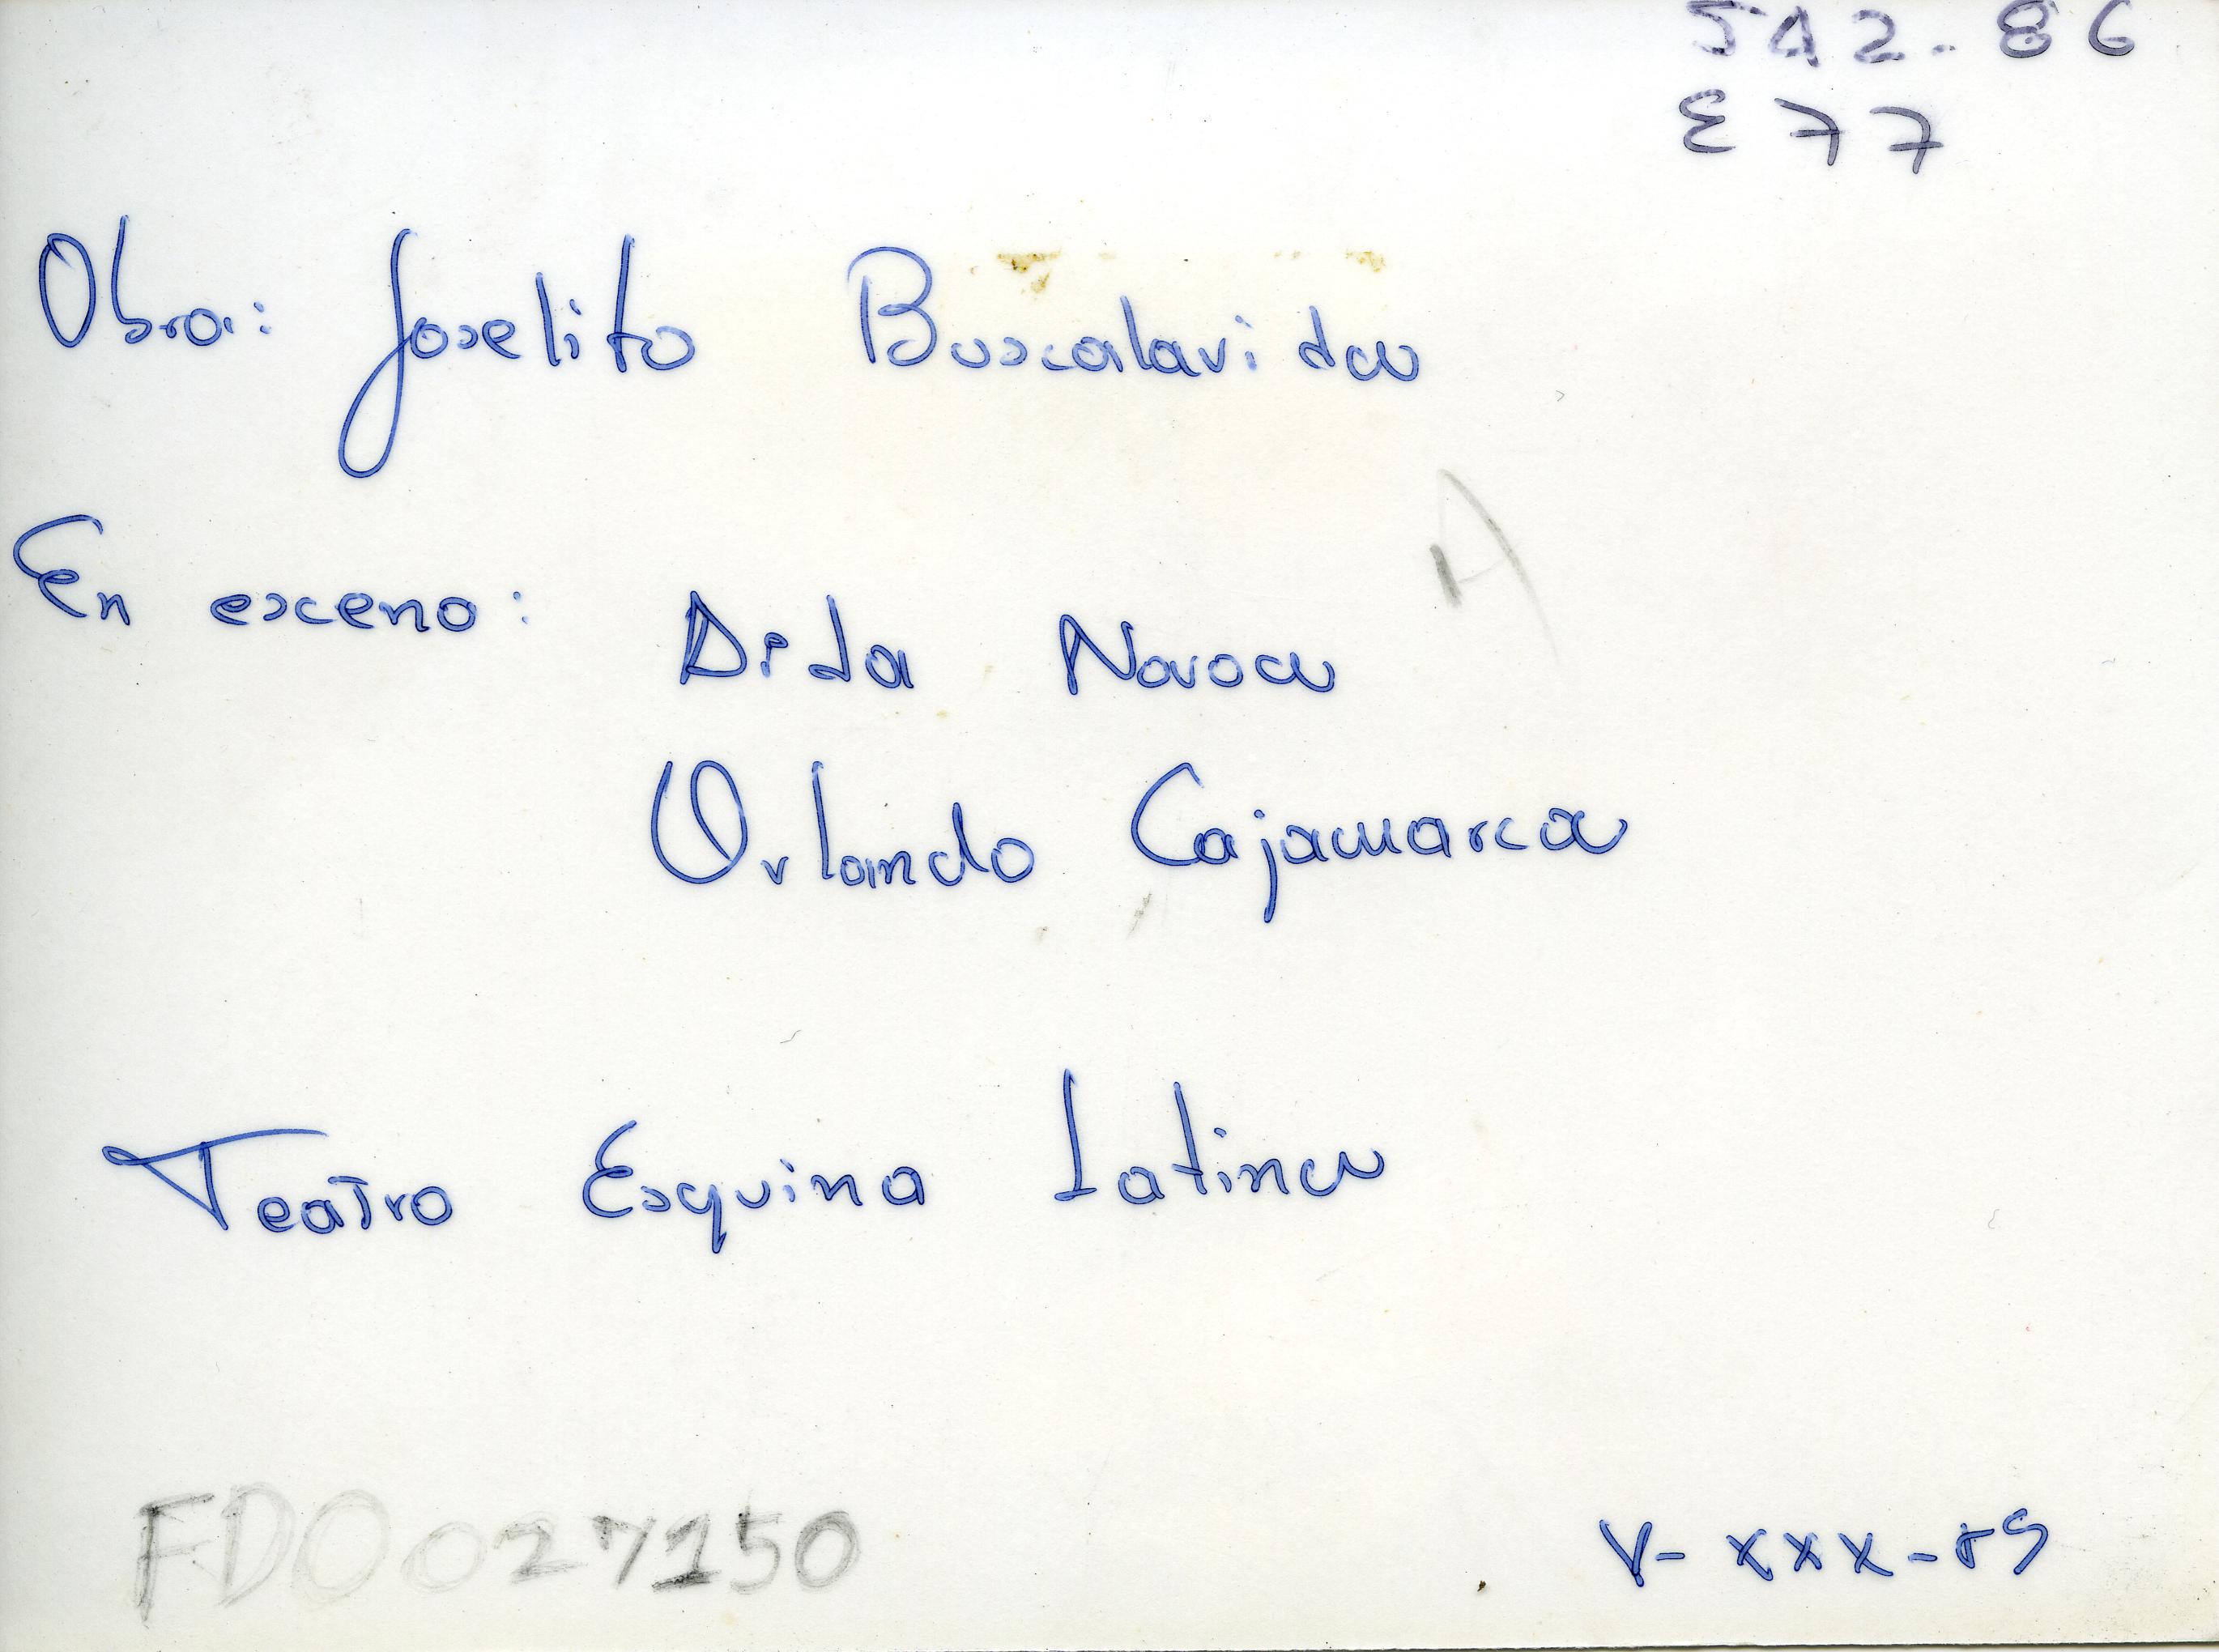 5A2-86
E77
Obra: Joselito Buscalavida
En escena:
A
Aida Novoa
Orlando Cajamarca
Teatro Esquina Latina
FDO027150
V-XXX-89